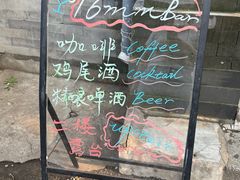 16mmBar
咖啡 Coffee
鸡尾酒 Cocktail
精酿啤酒 Beer
二楼
露台